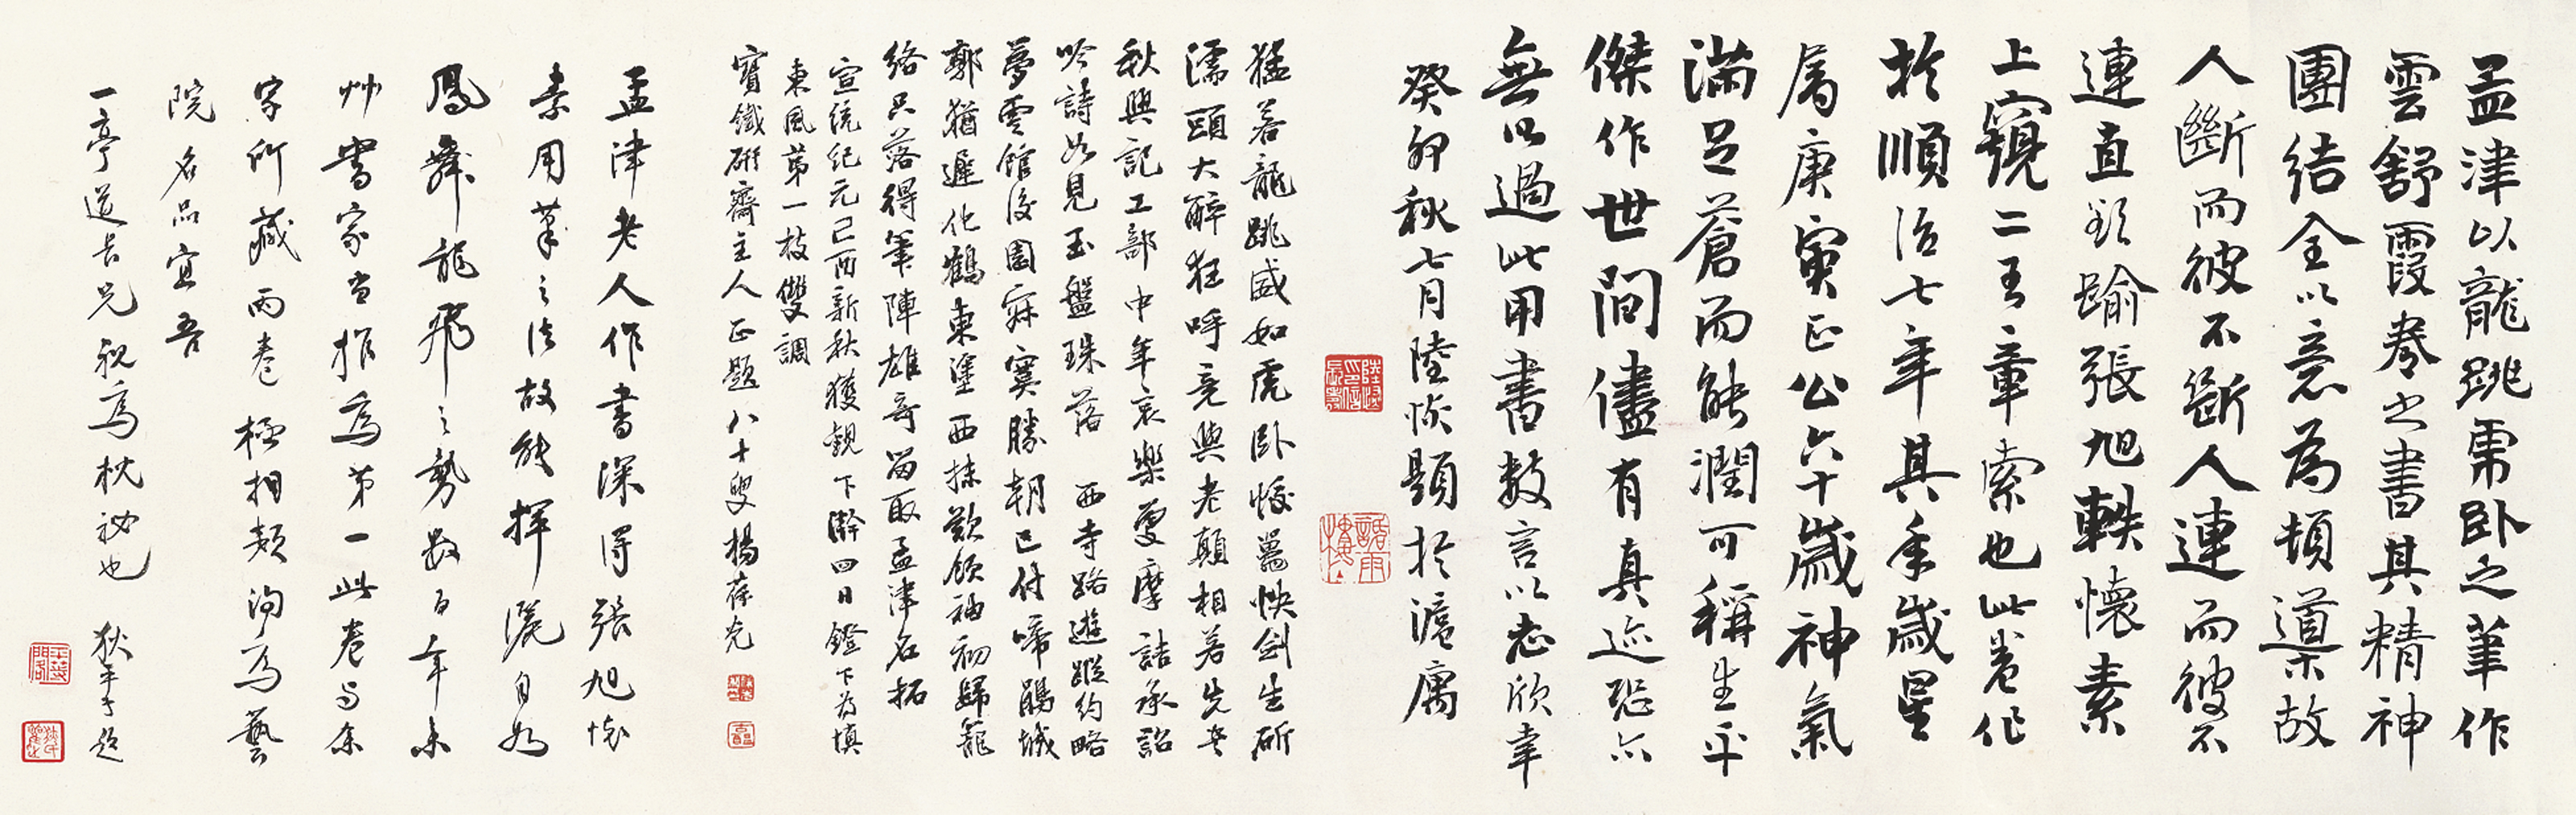 孟津以龍跳虎卧之筆作
雲舒霞卷之書其精神
團結全以意為頓導故
人斷而彼不斷人連而彼不
連直欲踰張旭軼懷素
上窺二王章索也此卷作
於順治七年其年歲星
属庚寅正公六十歲神氣
滿足蒼而能潤可稱生平
傑作世間儘有真迹恐亦
無以過此用書数言以志欣幸
癸卯秋七月陸恢題於滬寓
猛若龍跳威如虎卧怪鶩怏劍生斫
濡頭大醉狂呼竟與老顛相若先生
秋興記工部中年哀樂更摩詰承詔
吟詩如見玉盤珠落 西寺路遊蹤約略
夢雲館後園寂寞勝朝已付啼鵑城
郭猶遲化鶴東塗西抹歎領袖初歸籠
絡只落得筆陣雄奇留取孟津名拓
宣統紀元己酉新秋獲觀下澣四日鐙下為填
東風第一枝雙調
寶鐵硏齋主人正題 八十叟楊葆光
孟津老人作書深得張旭懷
素用筆之法故能揮灑自如
鳳舞龍飛之勢數百年來
艸書家當推為第一此卷與余
家所藏兩卷極相類洵為藝
院名品宜吾
一亭道長兄視為枕祕也 狄平子題